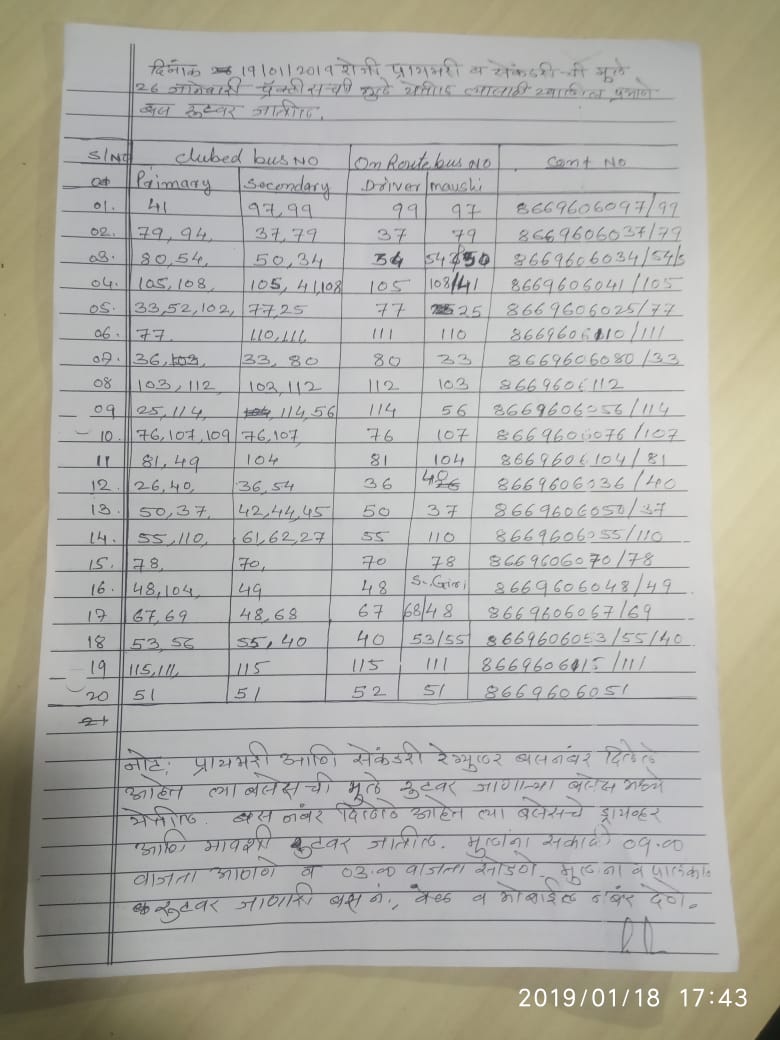 दिनांक 19/01/2019 रोजी प्रायमरी व सेकंडरी ची मुले
26 जानेवारी प्रॅक्टीससाठी मुले येतील त्यासाठी खालील प्रमाणे
बस रुटवर जातील.
S/No Clubed bus NO On Route bus NO Cont No
Primary Secondary Driver maushi
01. 41 97,99 99 97 8669606097/99
02. 79, 94, 37,79 37 79 8669606037/79
03. 80,54, 50,34 34 54/50 8669606034/54/5
04. 105,108, 105, 41,108 105 108/41 8669606041/105
05. 33,52,102, 77,25 77 25 8669606025/77
06. 77. 110,111 111 110 8669606110/111
07. 36, 103, 33, 80 80 33 8669606080/33
08 103,112, 103,112 112 103 8669606112
09 25,114, 114,56 114 56 8669606056/114
10. 76,107,109 76,107 76 107 8669606076/107
11 81,49 104 81 104 8669606104/81
12. 26,40, 36,54 36 40 8669606036/40
13. 50,37, 42,44,45 50 37 8669606050/37
14. 55,110, 61,62,27 55 110 8669606055/110
15. 78, 70, 70 78 8669606070/78
16. 48,104, 49 48 S. Giri 8669606048/49
17 67,69 48,68 67 68/48 8669606067/69
18 53,56 55,40 40 53/55 8669606053/55/40
19 115,111, 115 115 111 8669606115/111
20 51 51 52 51 8669606051
21
नोट: प्रायमरी आणि सेकंडरी रेग्युलर बसनंबर दिलेले
आहेत त्या बसेस ची मुले रुटवर जाणाऱ्या बसेस मध्ये
येतील. बस नंबर दिलेले आहेत त्या बसेसचे ड्रायव्हर
आणि मावशी रुटवर जातील. मुलांना सकाळी 09.00
वाजता आणणे व 03.00 वाजता सोडणे. मुलांना व पालकांना
रुटवर जाणारी बस नं., वेळ व मोबाईल नंबर देणे.
2019/01/18 17:43